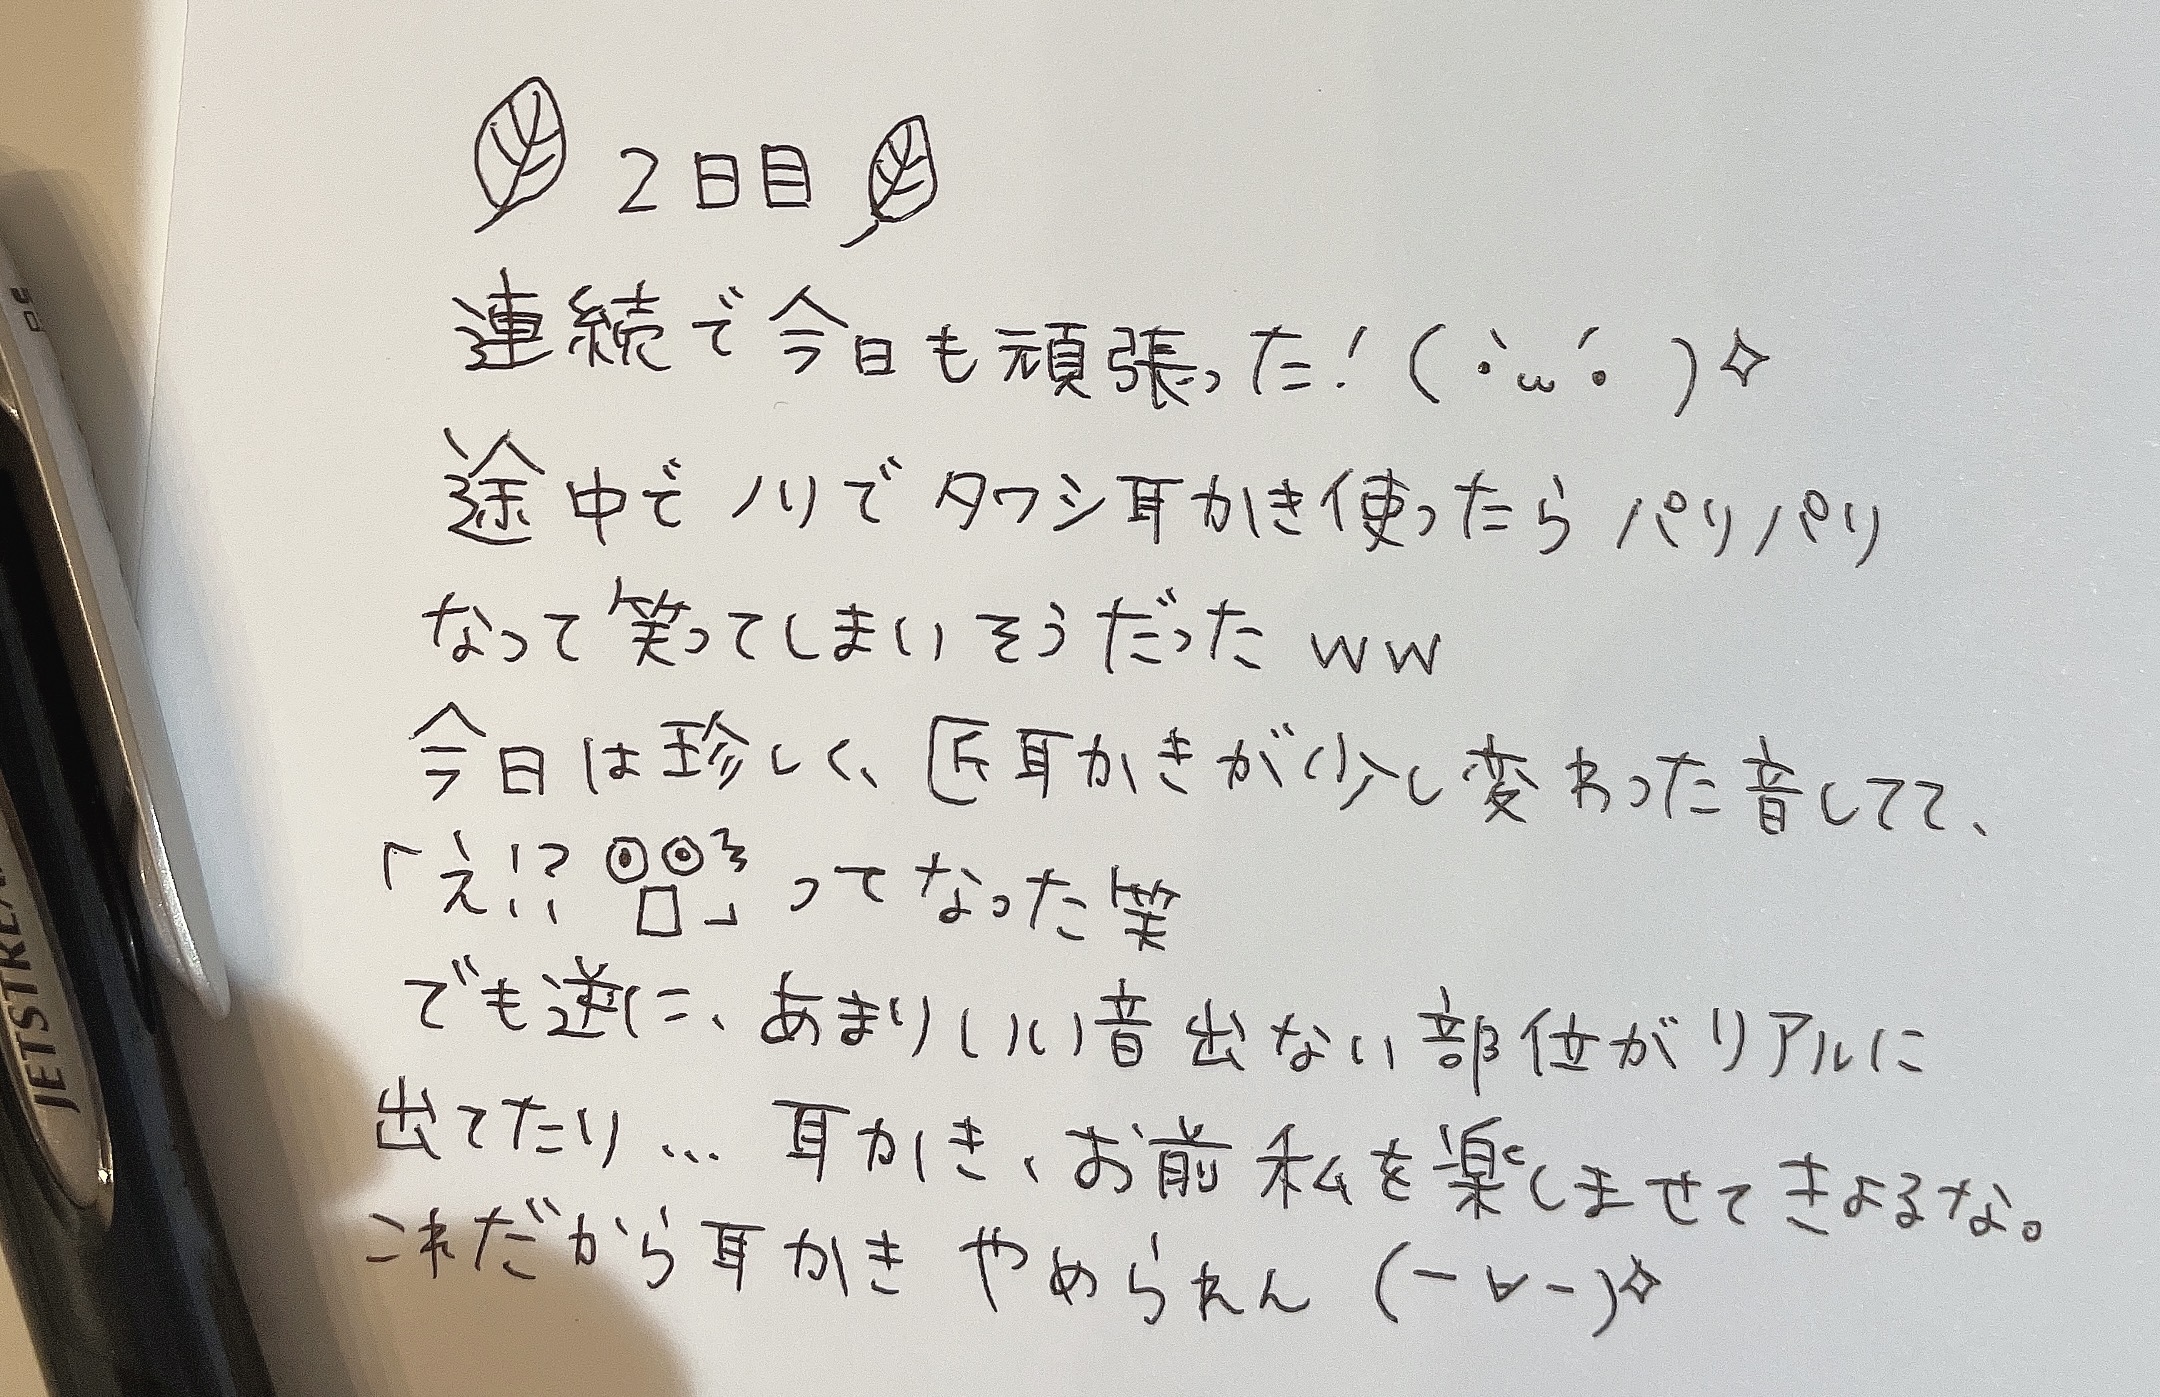 2日目
連続で今日も頑張った!(•̀ω•́)✧
途中でノリでタワシ耳かき使ったらパリパリ
なって笑ってしまいそうだったww
今日は珍しく、匠耳かきが少し変わった音してて、
「え!? ◎◎ろ□」ってなった笑
でも逆に、あまりいい音出ない部位がリアルに
出てたり…耳かき、お前私を楽しませてきよるな。
これだから耳かきやめられん(ー∀ー)✧
JETSTREAM